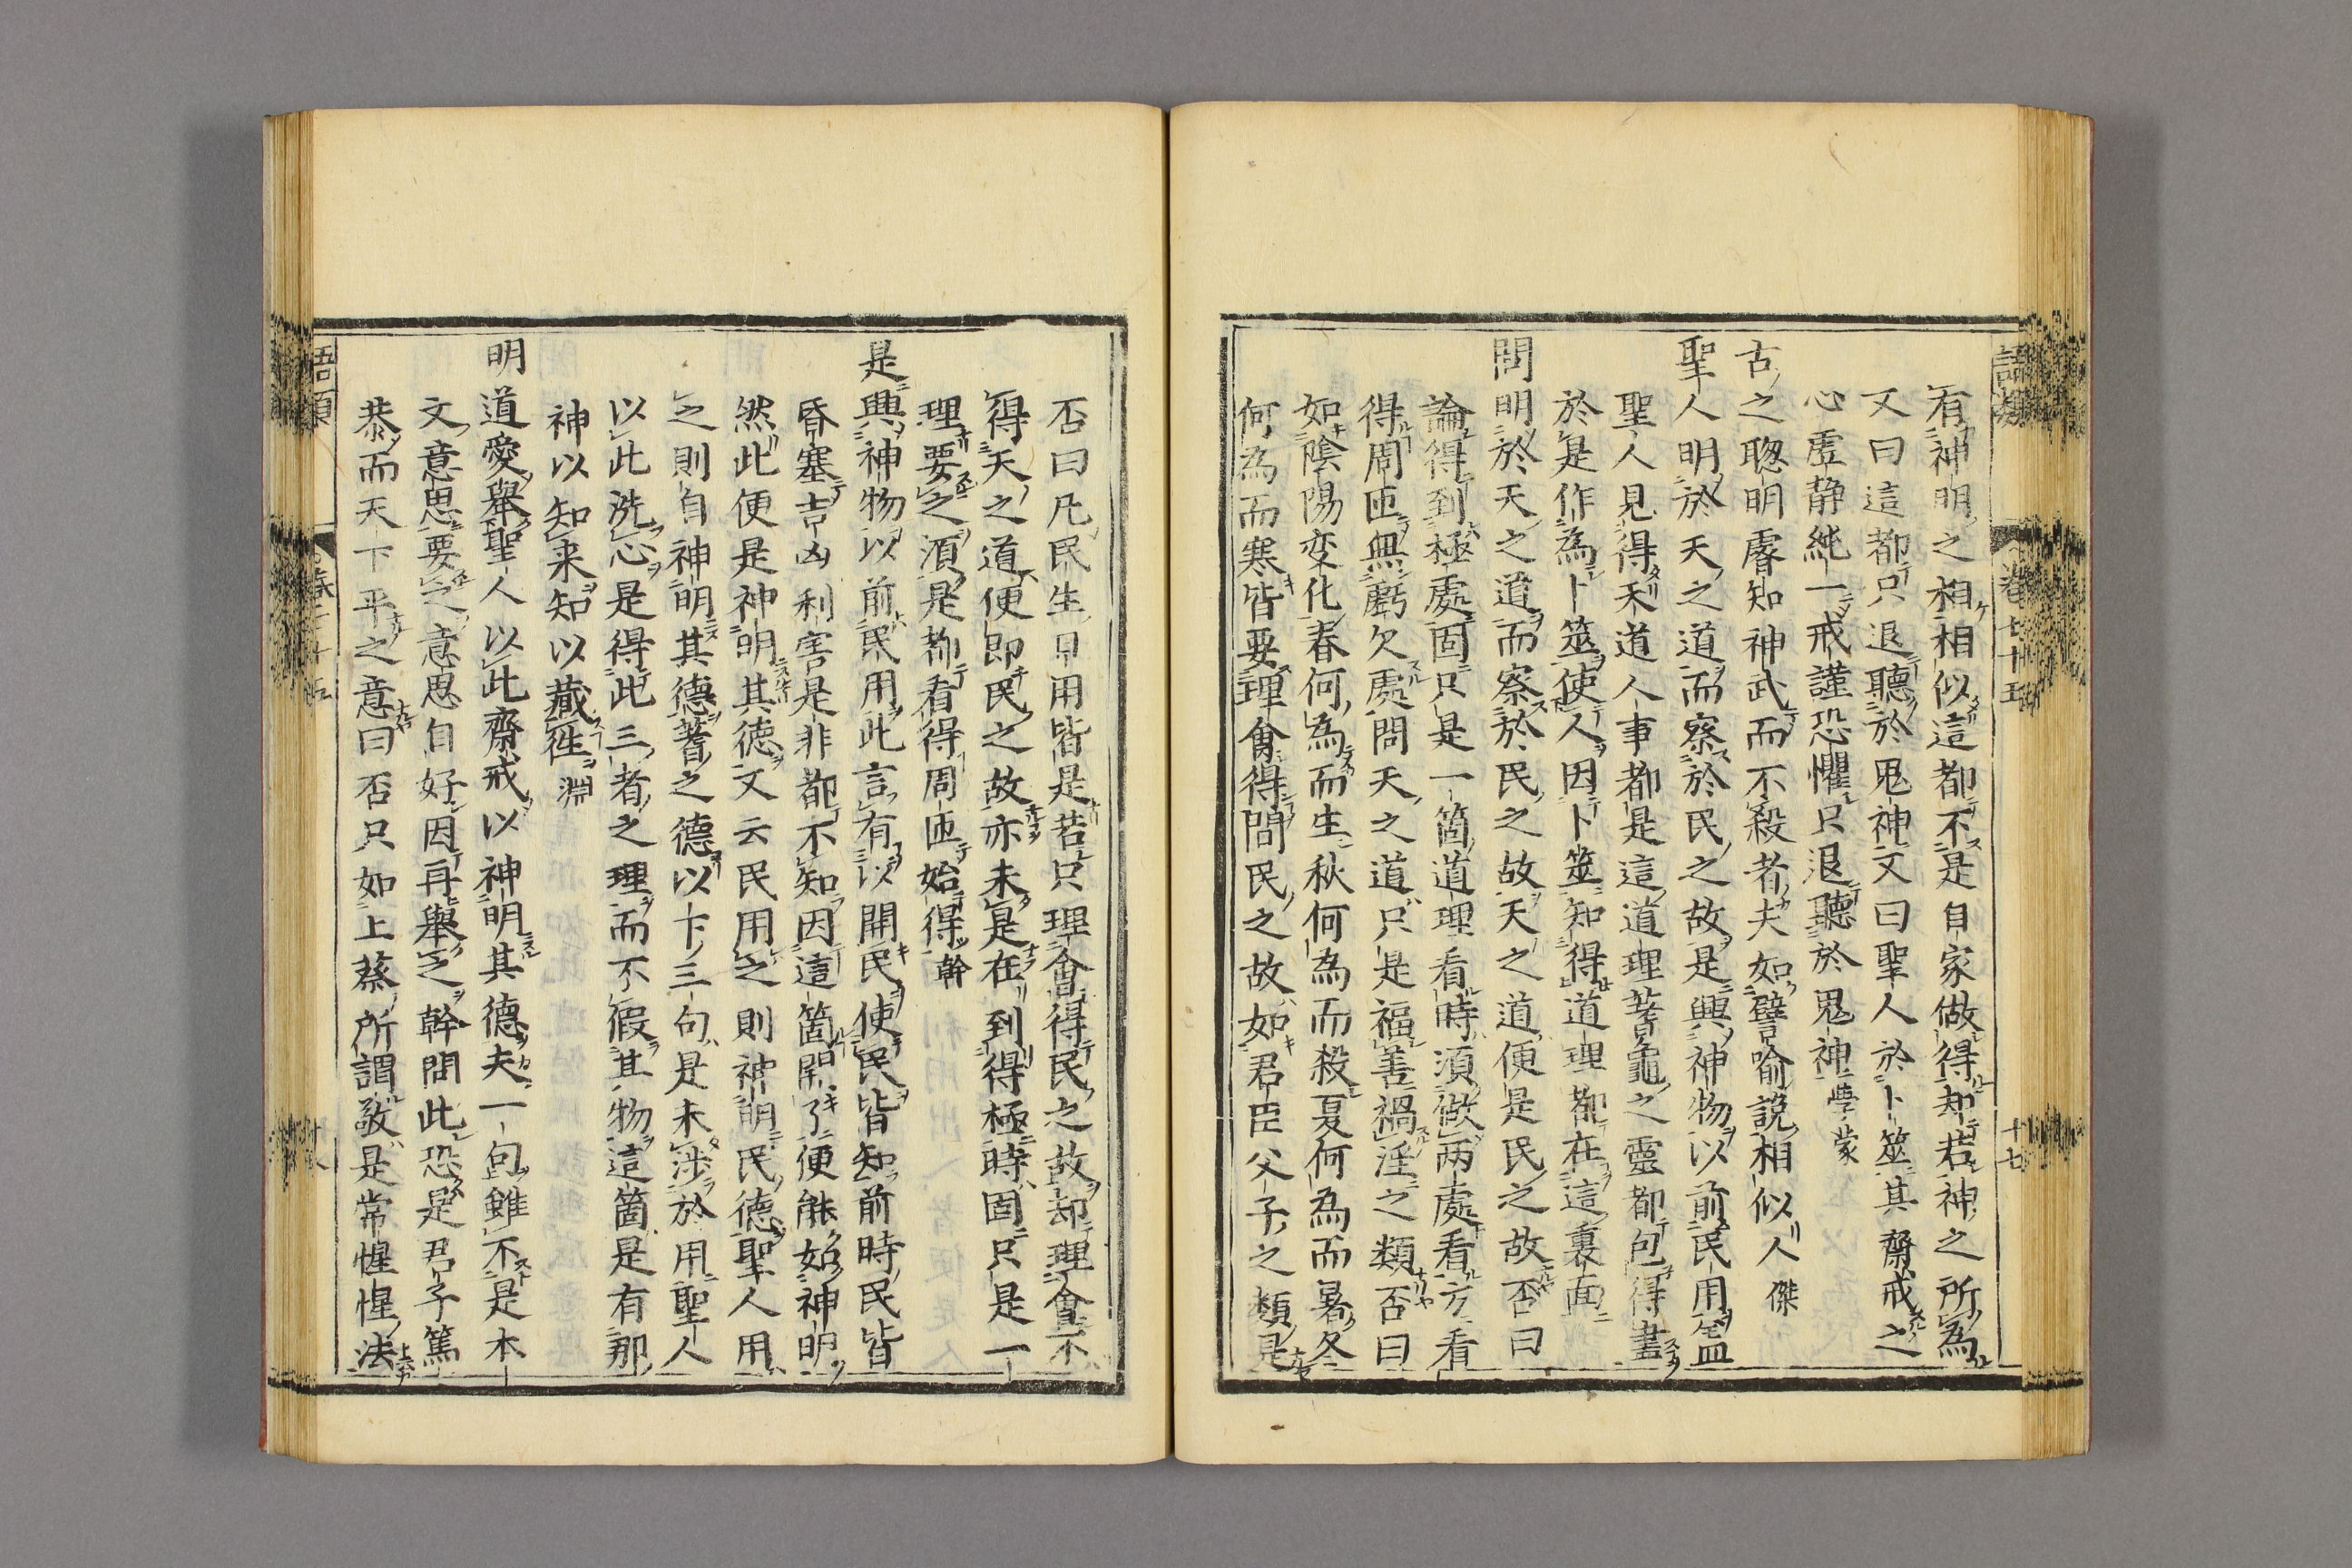 語類 卷七十五 十七
有神明之相相似這都不是自家做得却若神之所為
又曰這都只退聽於鬼神又曰聖人於卜筮其齋戒之
心虚静純一戒謹恐懼只退聽於鬼神 學蒙
古之聰明睿知神武而不殺者夫如譬喻說相似人 傑
聖人明於天之道而察於民之故是興神物以前民用盖
聖人見得天道人事都是這道理蓍龜之靈都包得盡
於是作為卜筮使人因卜筮知得道理都在這裏面
問明於天之道而察於民之故天之道便是民之故否曰
論得到極處固只是一箇道理看時須做兩處看方看
得周匝無虧欠處問天之道只是福善禍淫之類否曰
如陰陽変化春何為而生秋何為而殺夏何為而暑冬
何為而寒皆要理會得問民之故如君臣父子之類是
否曰凡民生日用皆是若只理會得民之故却理會不
得天之道便即民之故亦未是在到得極時固只是一
理要之須是都看得周匝始得 幹
是興神物以前民用此言有以開民使民皆知前時民皆
昏塞吉凶利害是非都不知因這箇開了便能如神明
然此便是神明其德又云民用之則神明民德聖人用
之則自神明其德蓍之德以下三句是未涉於用聖人
以此洗心是得此三者之理而不假其物這箇是有那
神以知来知以藏徃 淵
明道愛舉聖人以此齋戒以神明其德夫一句雖不是本
文意思要之意思自好因再舉之幹問此恐是君子篤
恭而天下平之意曰否只如上蔡所謂敬是常惺惺法
語類 卷七十五